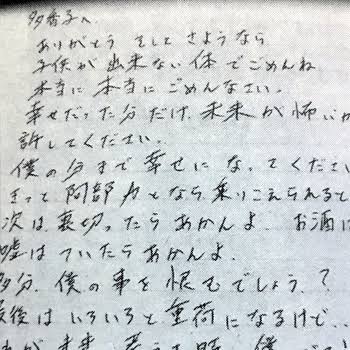 多香子へ
ありがとう そして さようなら
子供が出来ない体でごめんね
本当に 本当に ごめんなさい。
幸せだった分だけ 未来が怖いか
許してください。
僕の分まで 幸せに なってくださ
きっと 阿部力となら 乗りこえられると
次は、裏切ったらあかんよ お酒
嘘は ついたらあかんよ。
多分、僕の事を恨むでしょう?
最後は いろいろと 重荷になるけど…
が 未来 時 僕